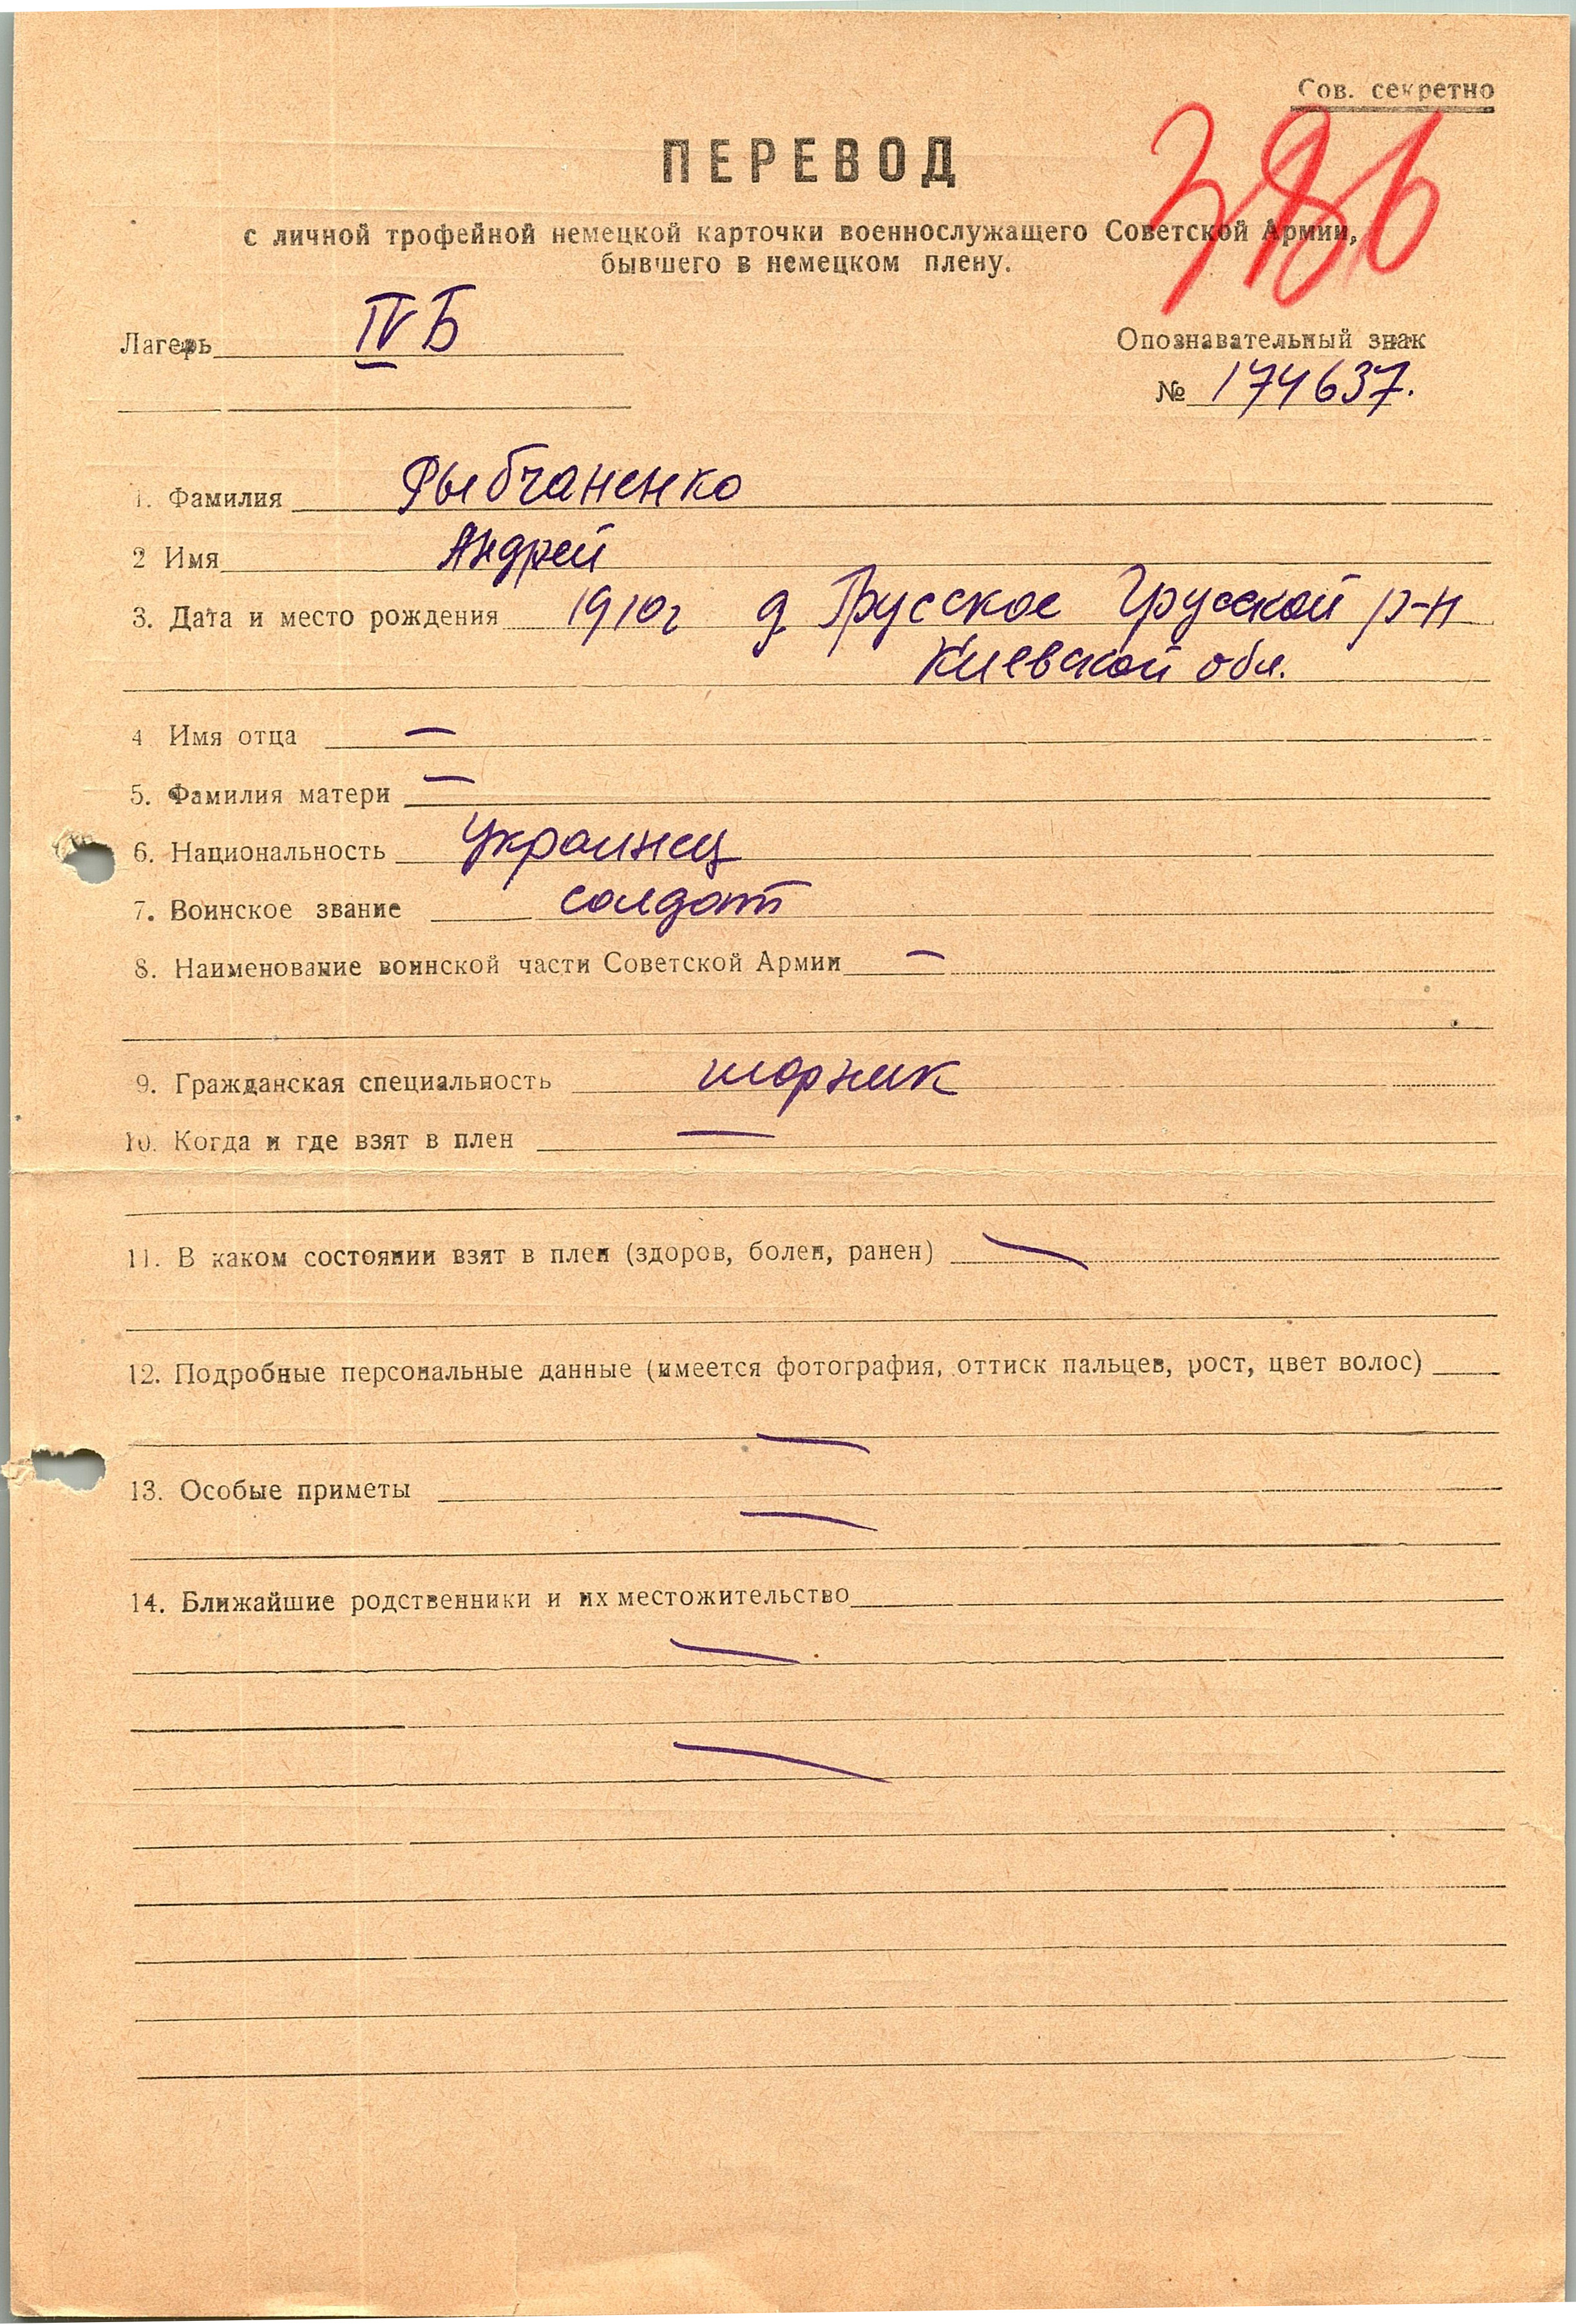 Сов. секретно
386
ПЕРЕВОД
с личной трофейной немецкой карточки военнослужащего Советской Армии,
бывшего в немецком плену.
Лагерь IV Б
Опознавательный знак
№ 174637.
1. Фамилия Рыбчаненко
2 Имя Андрей
3. Дата и место рождения 1910г д. Прусское Грусской р-н
Киевской обл.
4 Имя отца —
5. Фамилия матери —
6. Национальность Украинец
7. Воинское звание солдат
8. Наименование воинской части Советской Армии —
9. Гражданская специальность шорник
10. Когда и где взят в плен —
11. В каком состоянии взят в плен (здоров, болен, ранен) —
12. Подробные персональные данные (имеется фотография, оттиск пальцев, рост, цвет волос)
—
13. Особые приметы
—
14. Ближайшие родственники и их местожительство
—
—